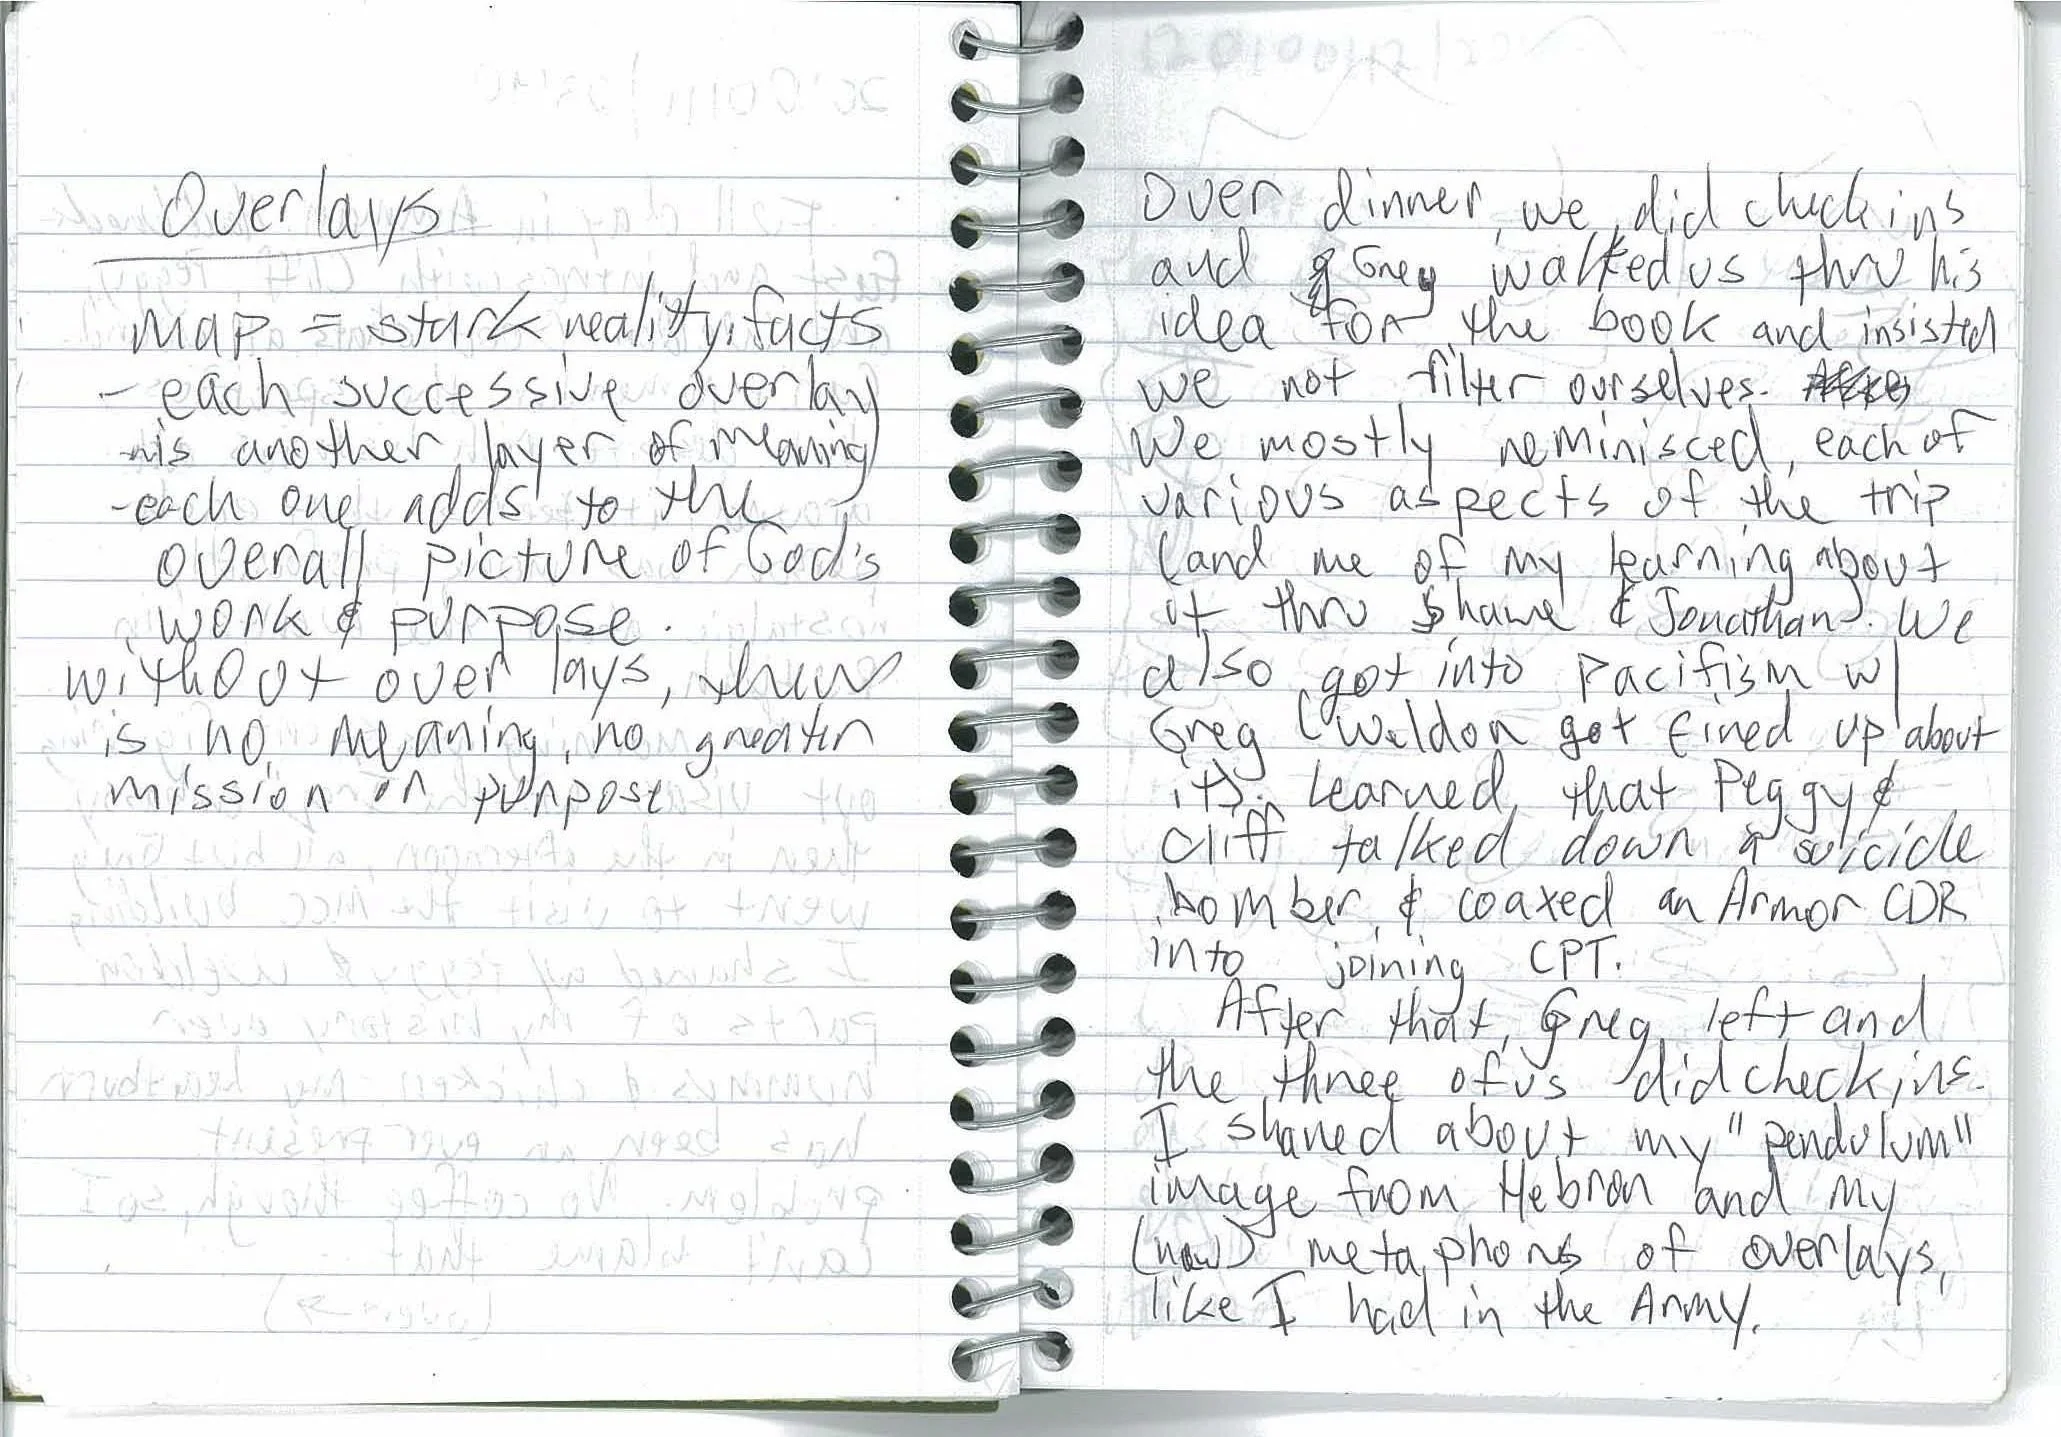 Overlays
Map = stark reality, facts
- each successive overlay
is another layer of meaning
- each one adds to the
overall picture of God's
work & purpose.
without over lays, there
is no meaning, no greater
mission or purpose
Over dinner, we did check ins
and Greg walked us thru his
idea for the book and insisted
we not filter ourselves.
We mostly reminisced, each of
various aspects of the trip
(and me of my learning about
it thru Shane & Jonathan). We
also got into pacifism w/
Greg (Weldon got fired up about
it). Learned that Peggy &
Cliff talked down a suicide
bomber & coaxed an Armor CDR
into joining CPT.
After that, Greg left and
the three of us did check ins.
I shared about my "pendulum"
image from Hebron and my
(new) metaphors of overlays,
like I had in the Army.